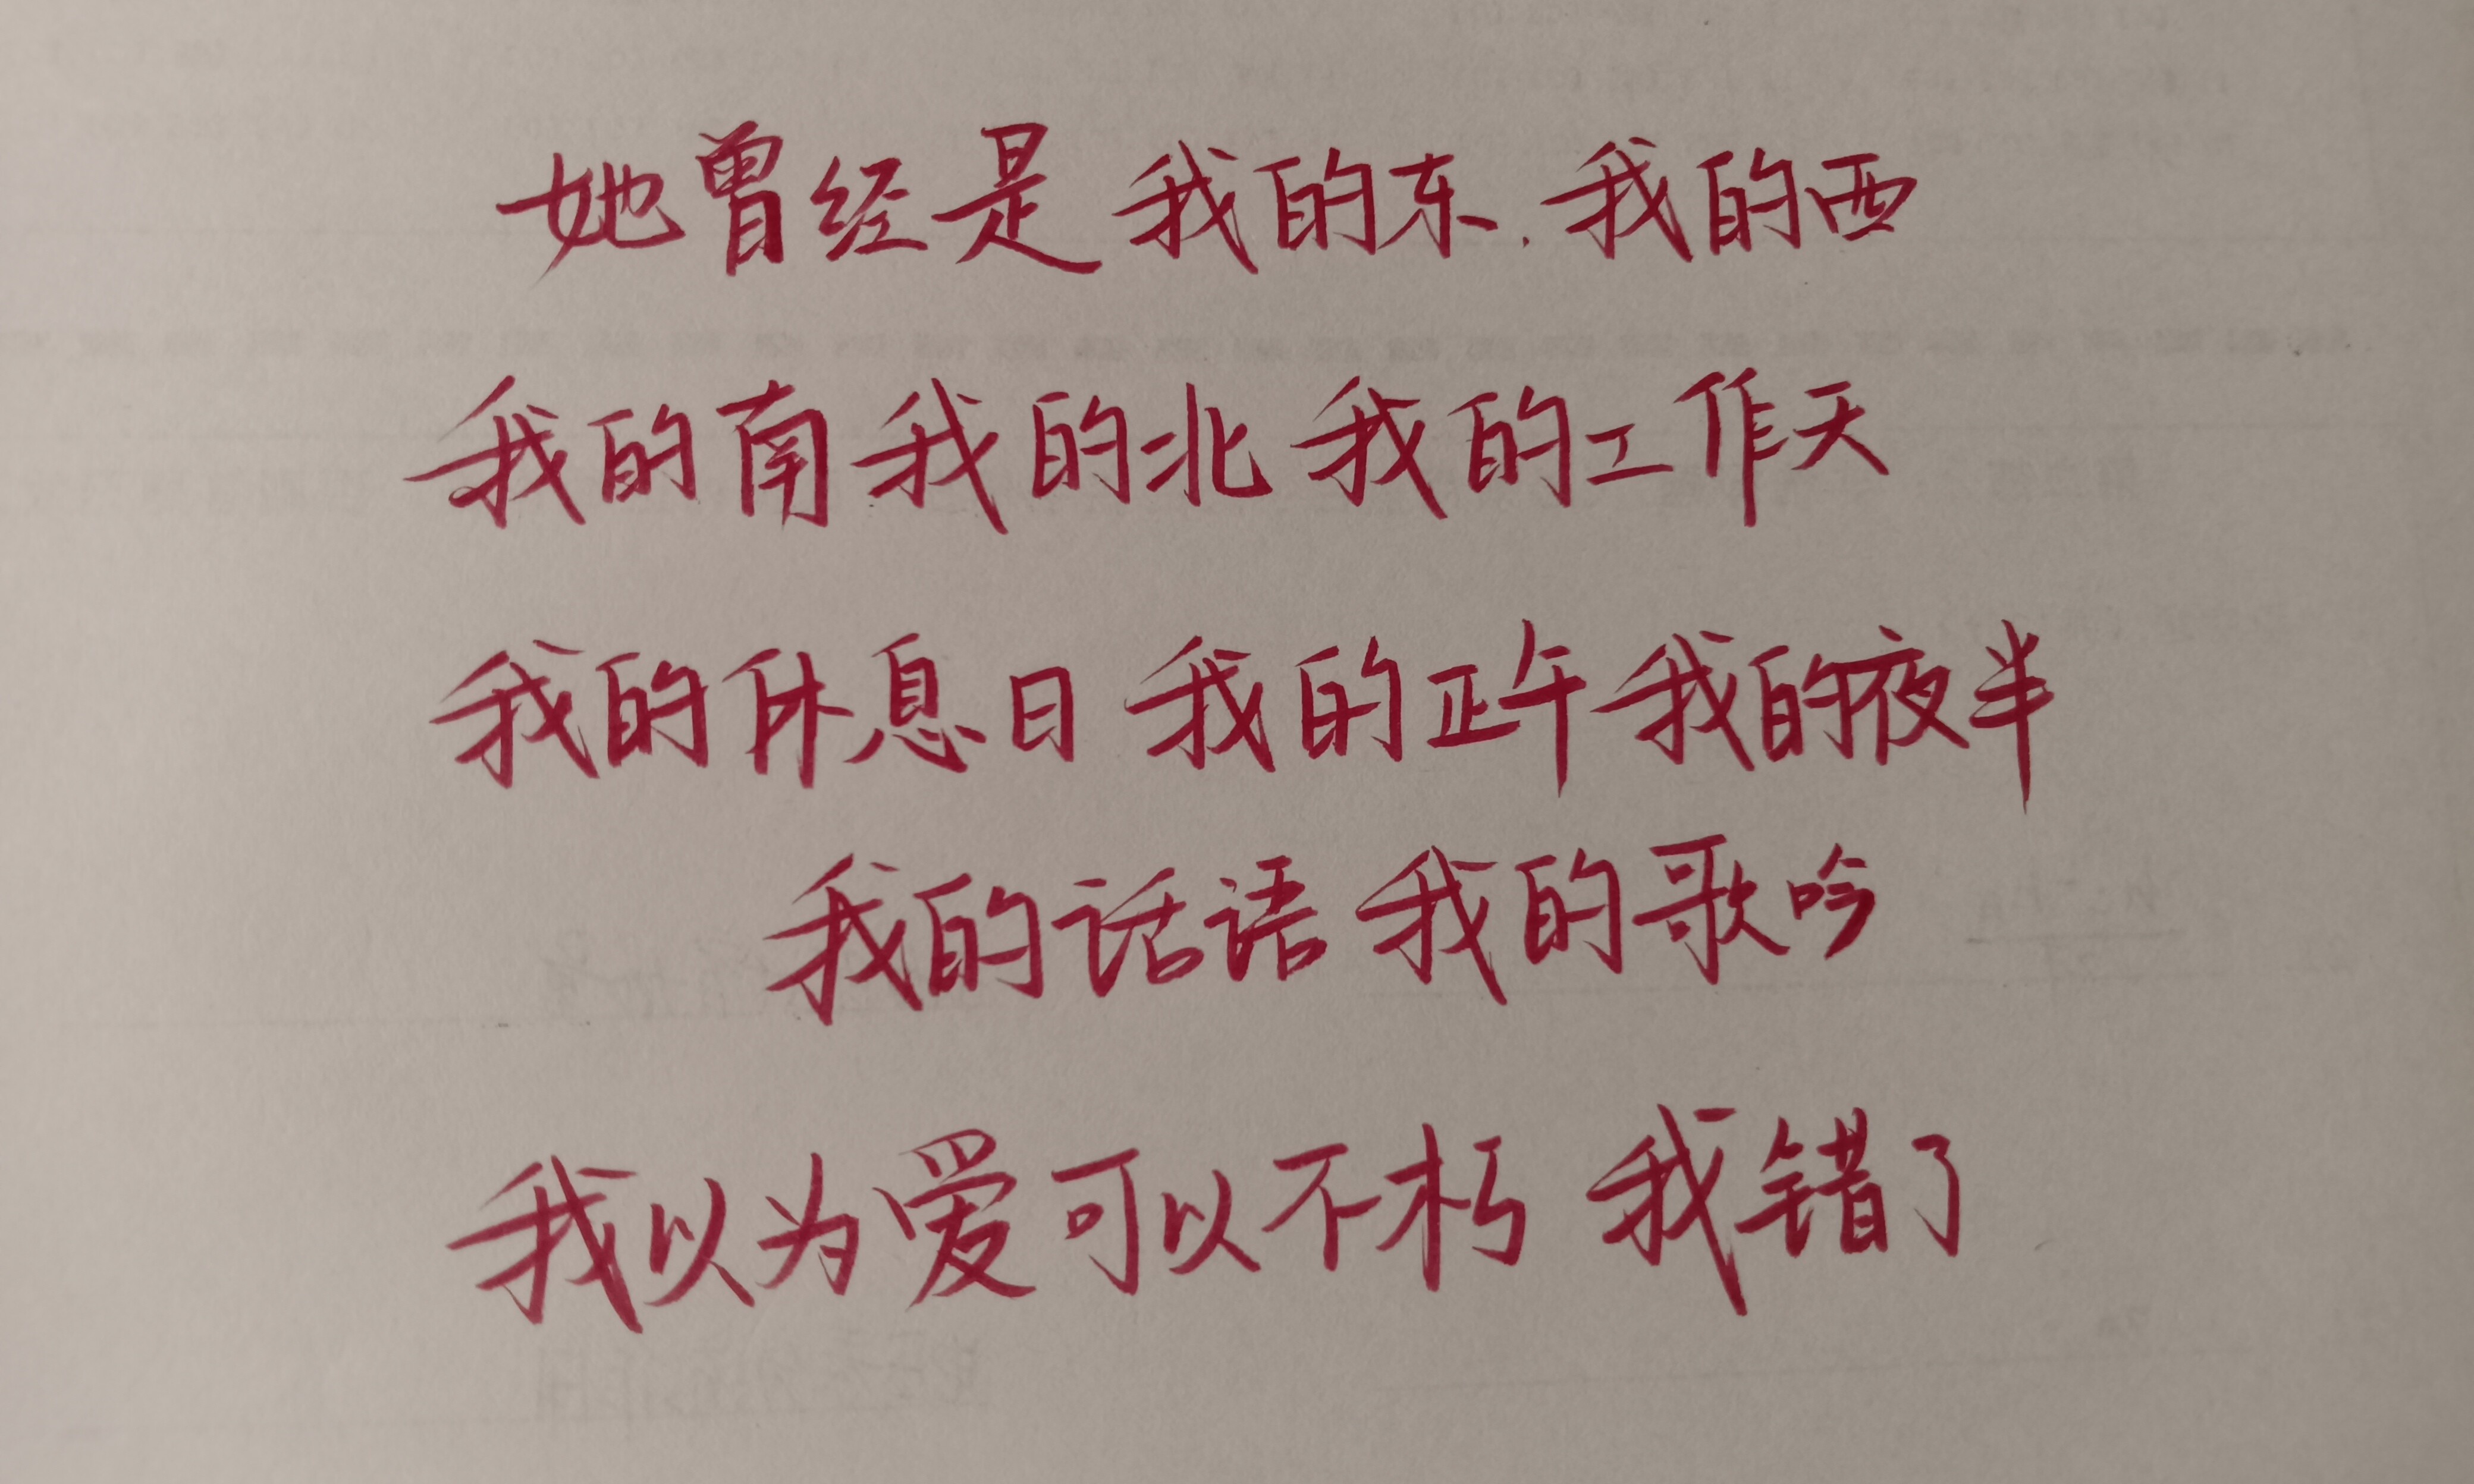 她曾经是 我的东.我的西
我的南 我的北 我的工作天
我的休息日 我的正午 我的夜半
我的话语 我的歌吟
我以为爱可以不朽 我错了